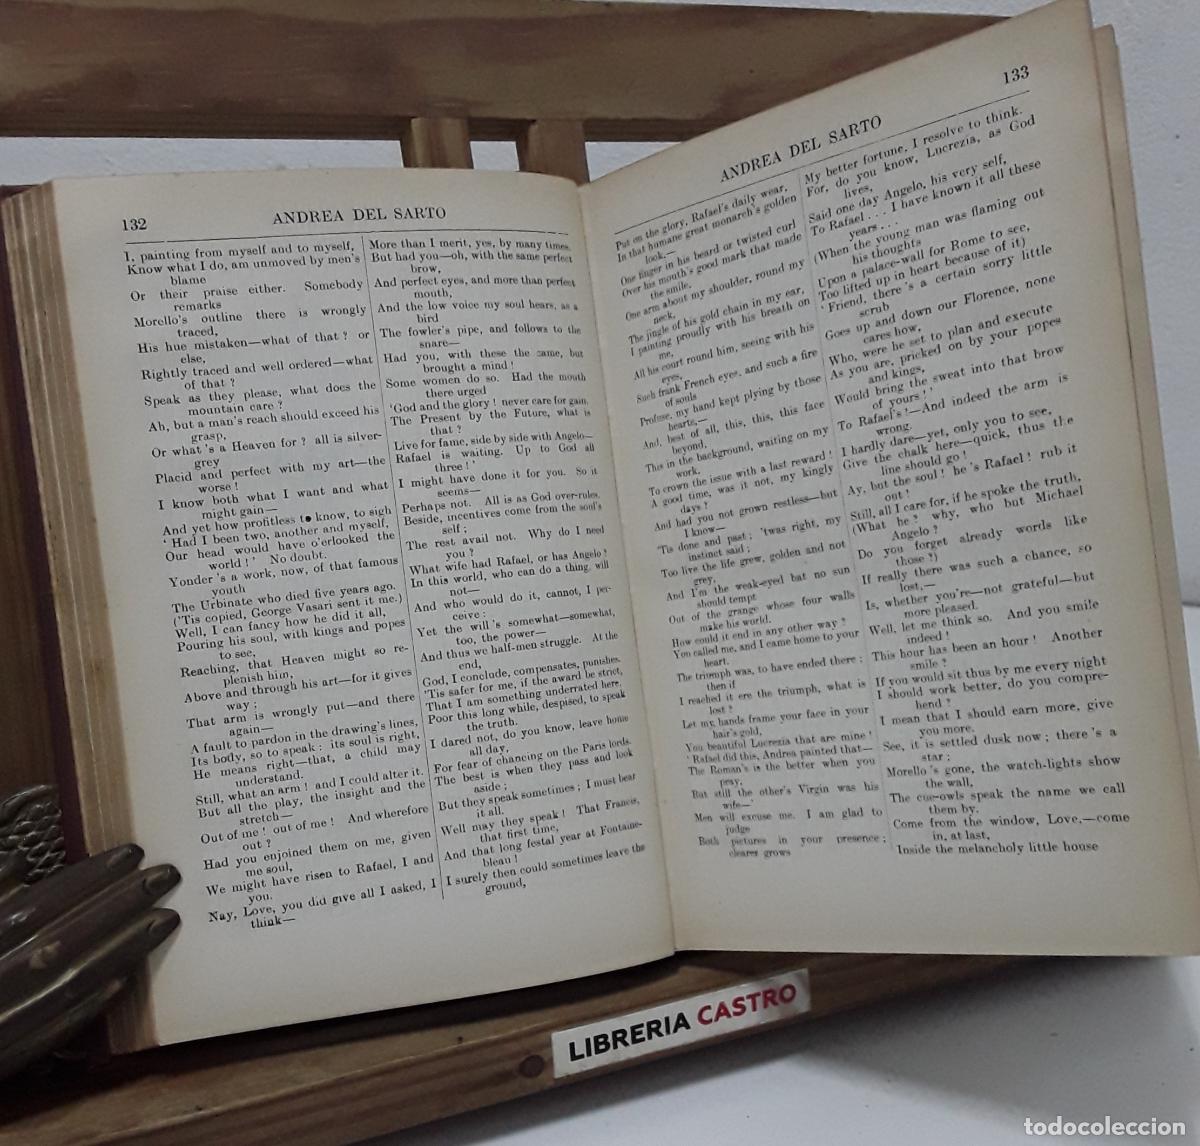 132
ANDREA DEL SARTO
I, painting from myself and to myself,
Know what I do, am unmoved by men's
blame
Or their praise either. Somebody
remarks
Morello's outline there is wrongly
traced,
His hue mistaken—what of that? or
else,
Rightly traced and well ordered—what
of that?
Speak as they please, what does the
mountain care?
Ah, but a man's reach should exceed his
grasp,
Or what's a Heaven for? all is silver-
grey
Placid and perfect with my art—the
worse!
I know both what I want and what
might gain—
And yet how profitless to know, to sigh
'Had I been two, another and myself,
Our head would have o'erlooked the
world!' No doubt.
Yonder's a work, now, of that famous
youth
The Urbinate who died five years ago.
('Tis copied, George Vasari sent it me.)
Well, I can fancy how he did it all,
Pouring his soul, with kings and popes
to see,
Reaching, that Heaven might so re-
plenish him,
Above and through his art—for it gives
way;
That arm is wrongly put—and there
again—
A fault to pardon in the drawing's lines,
Its body, so to speak: its soul is right,
He means right—that, a child may
understand.
Still, what an arm! and I could alter it.
But all the play, the insight and the
stretch—
Out of me! out of me! And wherefore
out?
Had you enjoined them on me, given
me soul,
We might have risen to Rafael, I and
you.
Nay, Love, you did give all I asked, I
think—
More than I merit, yes, by many times.
But had you—oh, with the same perfect
brow,
And perfect eyes, and more than perfect
mouth,
And the low voice my soul hears, as a
bird
The fowler's pipe, and follows to the
snare—
Had you, with these the same, but
brought a mind!
Some women do so. Had the mouth
there urged
'God and the glory! never care for gain.
The Present by the Future, what is
that?
Live for fame, side by side with Angelo—
Rafael is waiting. Up to God all
three!'
I might have done it for you. So it
seems—
Perhaps not. All is as God over-rules.
Beside, incentives come from the soul's
self;
The rest avail not. Why do I need
you?
What wife had Rafael, or has Angelo?
In this world, who can do a thing, will
not—
And who would do it, cannot, I per-
ceive:
Yet the will's somewhat—somewhat,
too, the power—
And thus we half-men struggle. At the
end,
God, I conclude, compensates, punishes.
'Tis safer for me, if the award be strict,
That I am something underrated here,
Poor this long while, despised, to speak
the truth.
I dared not, do you know, leave home
all day,
For fear of chancing on the Paris lords.
The best is when they pass and look
aside;
But they speak sometimes; I must bear
it all.
Well may they speak! That Francis,
that first time,
And that long festal year at Fontaine-
bleau!
I surely then could sometimes leave the
ground,
133
ANDREA DEL SARTO
Put on the glory, Rafael's daily wear,
In that humane great monarch's golden
look,—
One finger in his beard or twisted curl
Over his mouth's good mark that made
the smile,
One arm about my shoulder, round my
neck,
The jingle of his gold chain in my ear,
I painting proudly with his breath on
me,
All his court round him, seeing with his
eyes,
Such frank French eyes, and such a fire
of souls
Profuse, my hand kept plying by those
hearts,—
And, best of all, this, this, this face
beyond,
This in the background, waiting on my
work,
To crown the issue with a last reward!
A good time, was it not, my kingly
days?
And had you not grown restless—but
I know—
'Tis done and past; 'twas right, my
instinct said;
Too live the life grew, golden and not
grey,
And I'm the weak-eyed bat no sun
should tempt
Out of the grange whose four walls
make his world.
How could it end in any other way?
You called me, and I came home to your
heart.
The triumph was, to have ended there;
then if
I reached it ere the triumph, what is
lost?
Let my hands frame your face in your
hair's gold,
You beautiful Lucrezia that are mine!
'Rafael did this, Andrea painted that—
The Roman's is the better when you
pray,
But still the other's Virgin was his
wife—'
Men will excuse me. I am glad to
judge
Both pictures in your presence;
clearer grows
My better fortune, I resolve to think.
For, do you know, Lucrezia, as God
lives,
Said one day Angelo, his very self,
To Rafael . . . I have known it all these
years . . .
(When the young man was flaming out
his thoughts
Upon a palace-wall for Rome to see,
Too lifted up in heart because of it)
'Friend, there's a certain sorry little
scrub
Goes up and down our Florence, none
cares how,
Who, were he set to plan and execute
As you are, pricked on by your popes
and kings,
Would bring the sweat into that brow
of yours!'
To Rafael's!—And indeed the arm is
wrong.
I hardly dare—yet, only you to see,
Give the chalk here—quick, thus the
line should go!
Ay, but the soul! he's Rafael! rub it
out!
Still, all I care for, if he spoke the truth,
(What he? why, who but Michael
Angelo?
Do you forget already words like
those?)
If really there was such a chance, so
lost,—
Is, whether you're—not grateful—but
more pleased.
Well, let me think so. And you smile
indeed!
This hour has been an hour! Another
smile?
If you would sit thus by me every night
I should work better, do you compre-
hend?
I mean that I should earn more, give
you more.
See, it is settled dusk now; there's a
star;
Morello's gone, the watch-lights show
the wall,
The cue-owls speak the name we call
them by.
Come from the window, Love,—come
in, at last,
Inside the melancholy little house
LIBRERIA CASTRO
todocoleccion